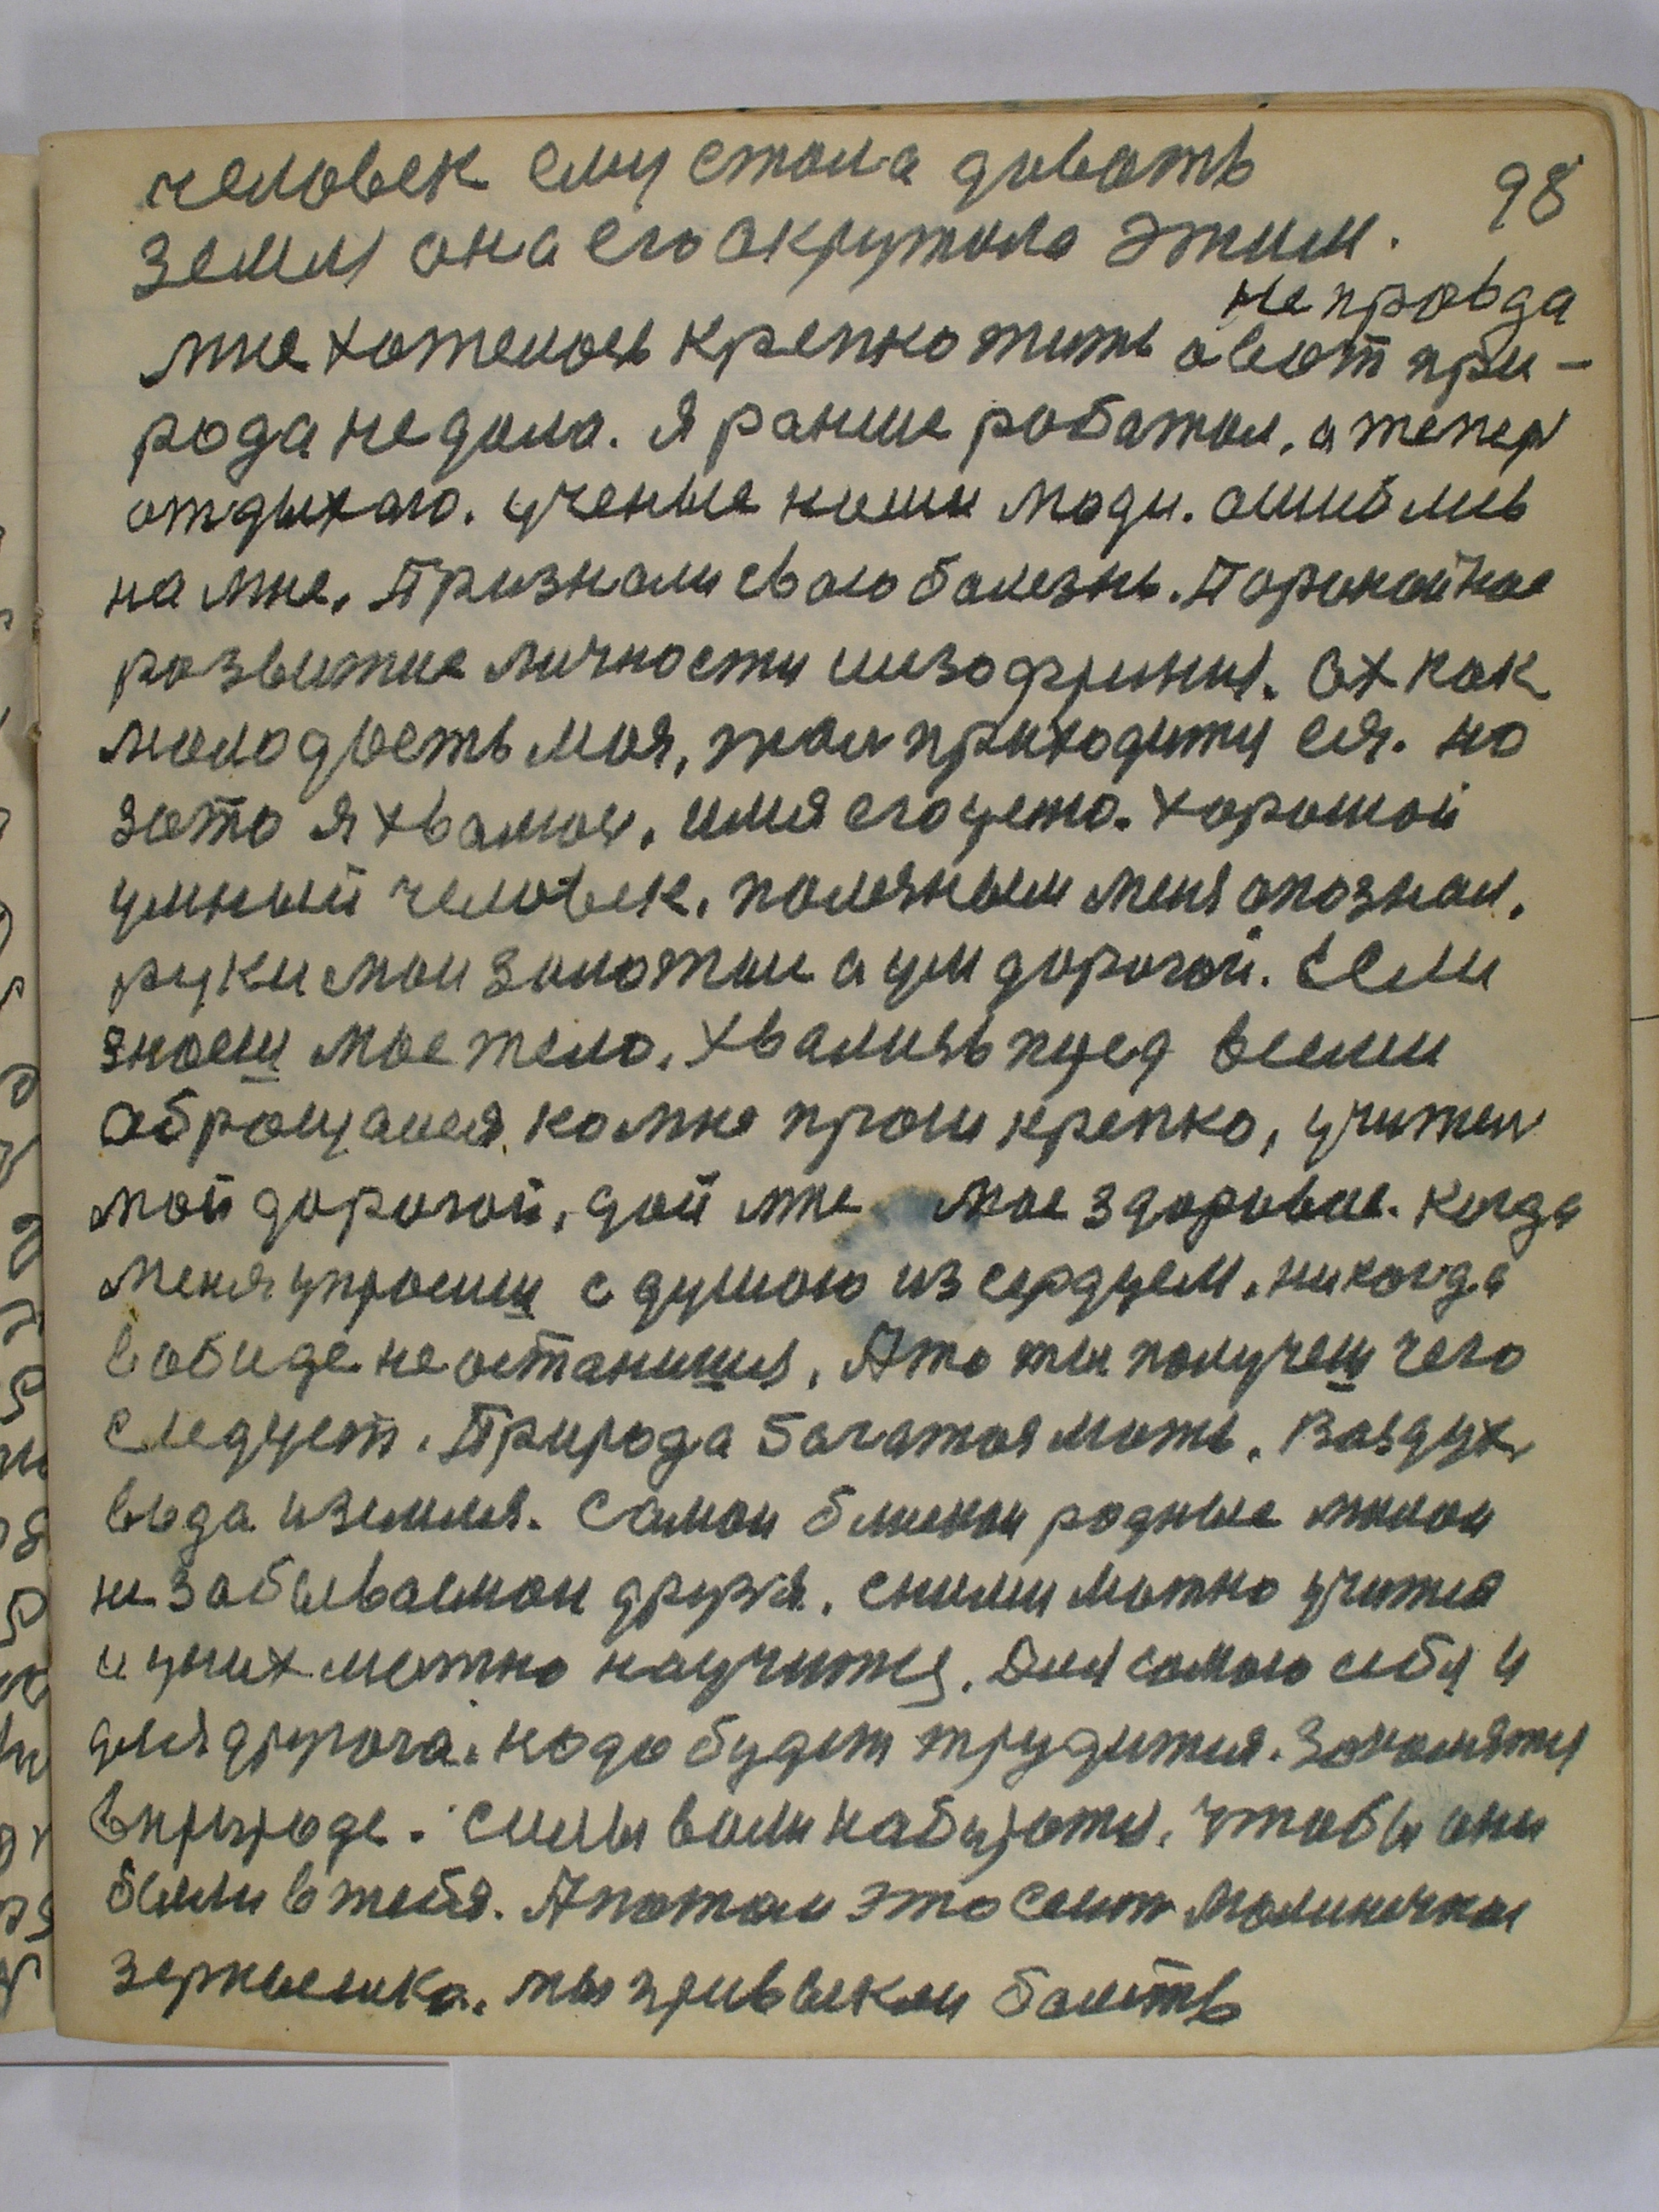 98
человек ему стала довать
земля она его окружила этим.
Не провда
мне хотелось крепко жить а вот при-
рода недала. Я ранше работал, а тепер
отдыхаю. ученые наши люди. ошиблись
на мне. Признали свою болезнь. Поронойное
розвитие личности шизофриния. Ох как
молодость моя, жал приходити ся. но
зато я хвалюсь, имя его цето. хорошой
умный человек. полезным меня опознал.
руки мои золотые а ум дорогой. Если
знаеш мое тело. хвались пиред всеми
обращайся комне проси крепко, учитель
мой дорогой, дай мне мое здоровье. когда
меня упросиш с душою из сердцем. никогда
вобиде не останишся. А то ты получеш чего
следует. Природа богатая мать. Воздух
вода иземля. Самои близкие родные милои
не забываемои друзя. сними можно учится
и уних можно научится. Для самого себя и
для другога. надо будет трудится. Закалятся
вприроде. силы воли набирати. чтобы они
были в тебя. А потом это сеит малинечкои
зернышка. мы привыкли болеть